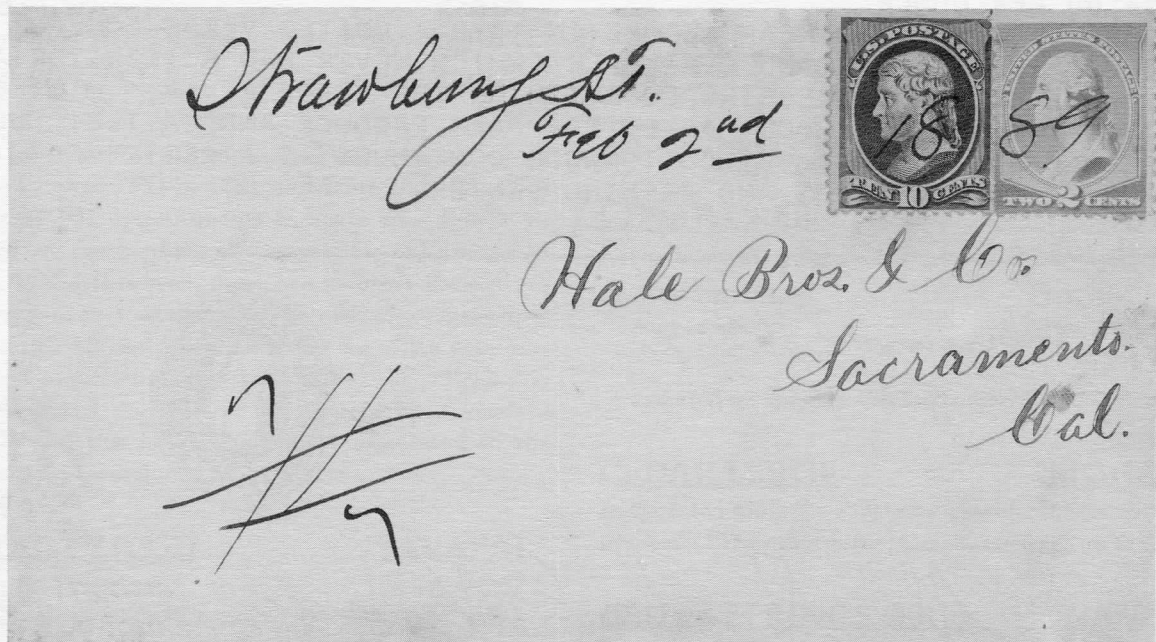 Strawberry St.
Feb 2nd
18 89
U.S. POSTAGE
TEN 10 CENTS
UNITED STATES POSTAGE
TWO 2 CENTS
Hale Bros. & Co.
Sacramento.
Cal.